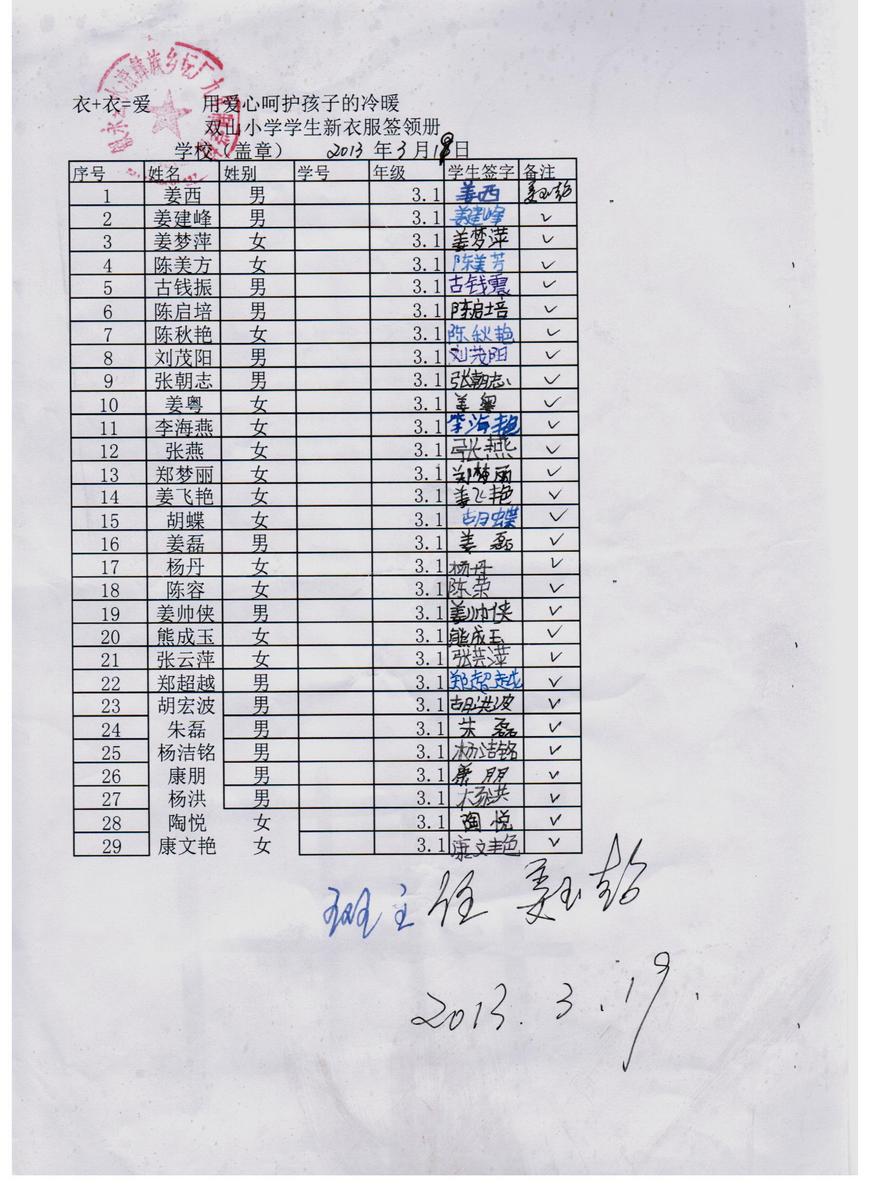 衣+衣=爱 用爱心呵护孩子的冷暖
双山小学学生新衣服签领册
学校（盖章） 2013 年 3 月 19 日
序号 姓名 姓别 学号 年级 学生签字 备注
1 姜西 男 3.1 姜西
2 姜建峰 男 3.1 姜建峰 ✓
3 姜梦萍 女 3.1 姜梦萍 ✓
4 陈美方 女 3.1 陈美芳 ✓
5 古钱振 男 3.1 古钱震 ✓
6 陈启培 男 3.1 陈启培 ✓
7 陈秋艳 女 3.1 陈秋艳 ✓
8 刘茂阳 男 3.1 刘茂阳 ✓
9 张朝志 男 3.1 张朝志 ✓
10 姜粤 女 3.1 姜粤 ✓
11 李海燕 女 3.1 李海艳 ✓
12 张燕 女 3.1 张燕 ✓
13 郑梦丽 女 3.1 郑梦丽 ✓
14 姜飞艳 女 3.1 姜飞艳 ✓
15 胡蝶 女 3.1 胡蝶 ✓
16 姜磊 男 3.1 姜磊 ✓
17 杨丹 女 3.1 杨丹 ✓
18 陈容 女 3.1 陈荣 ✓
19 姜帅侠 男 3.1 姜帅侠 ✓
20 熊成玉 女 3.1 熊成玉 ✓
21 张云萍 女 3.1 张芸萍 ✓
22 郑超越 男 3.1 郑超越 ✓
23 胡宏波 男 3.1 胡洪波 ✓
24 朱磊 男 3.1 朱磊 ✓
25 杨洁铭 男 3.1 杨洁铭 ✓
26 康朋 男 3.1 康朋 ✓
27 杨洪 男 3.1 杨洪 ✓
28 陶悦 女 3.1 陶悦 ✓
29 康文艳 女 3.1 康文艳 ✓
班主任 姜玉
2013.3.19.